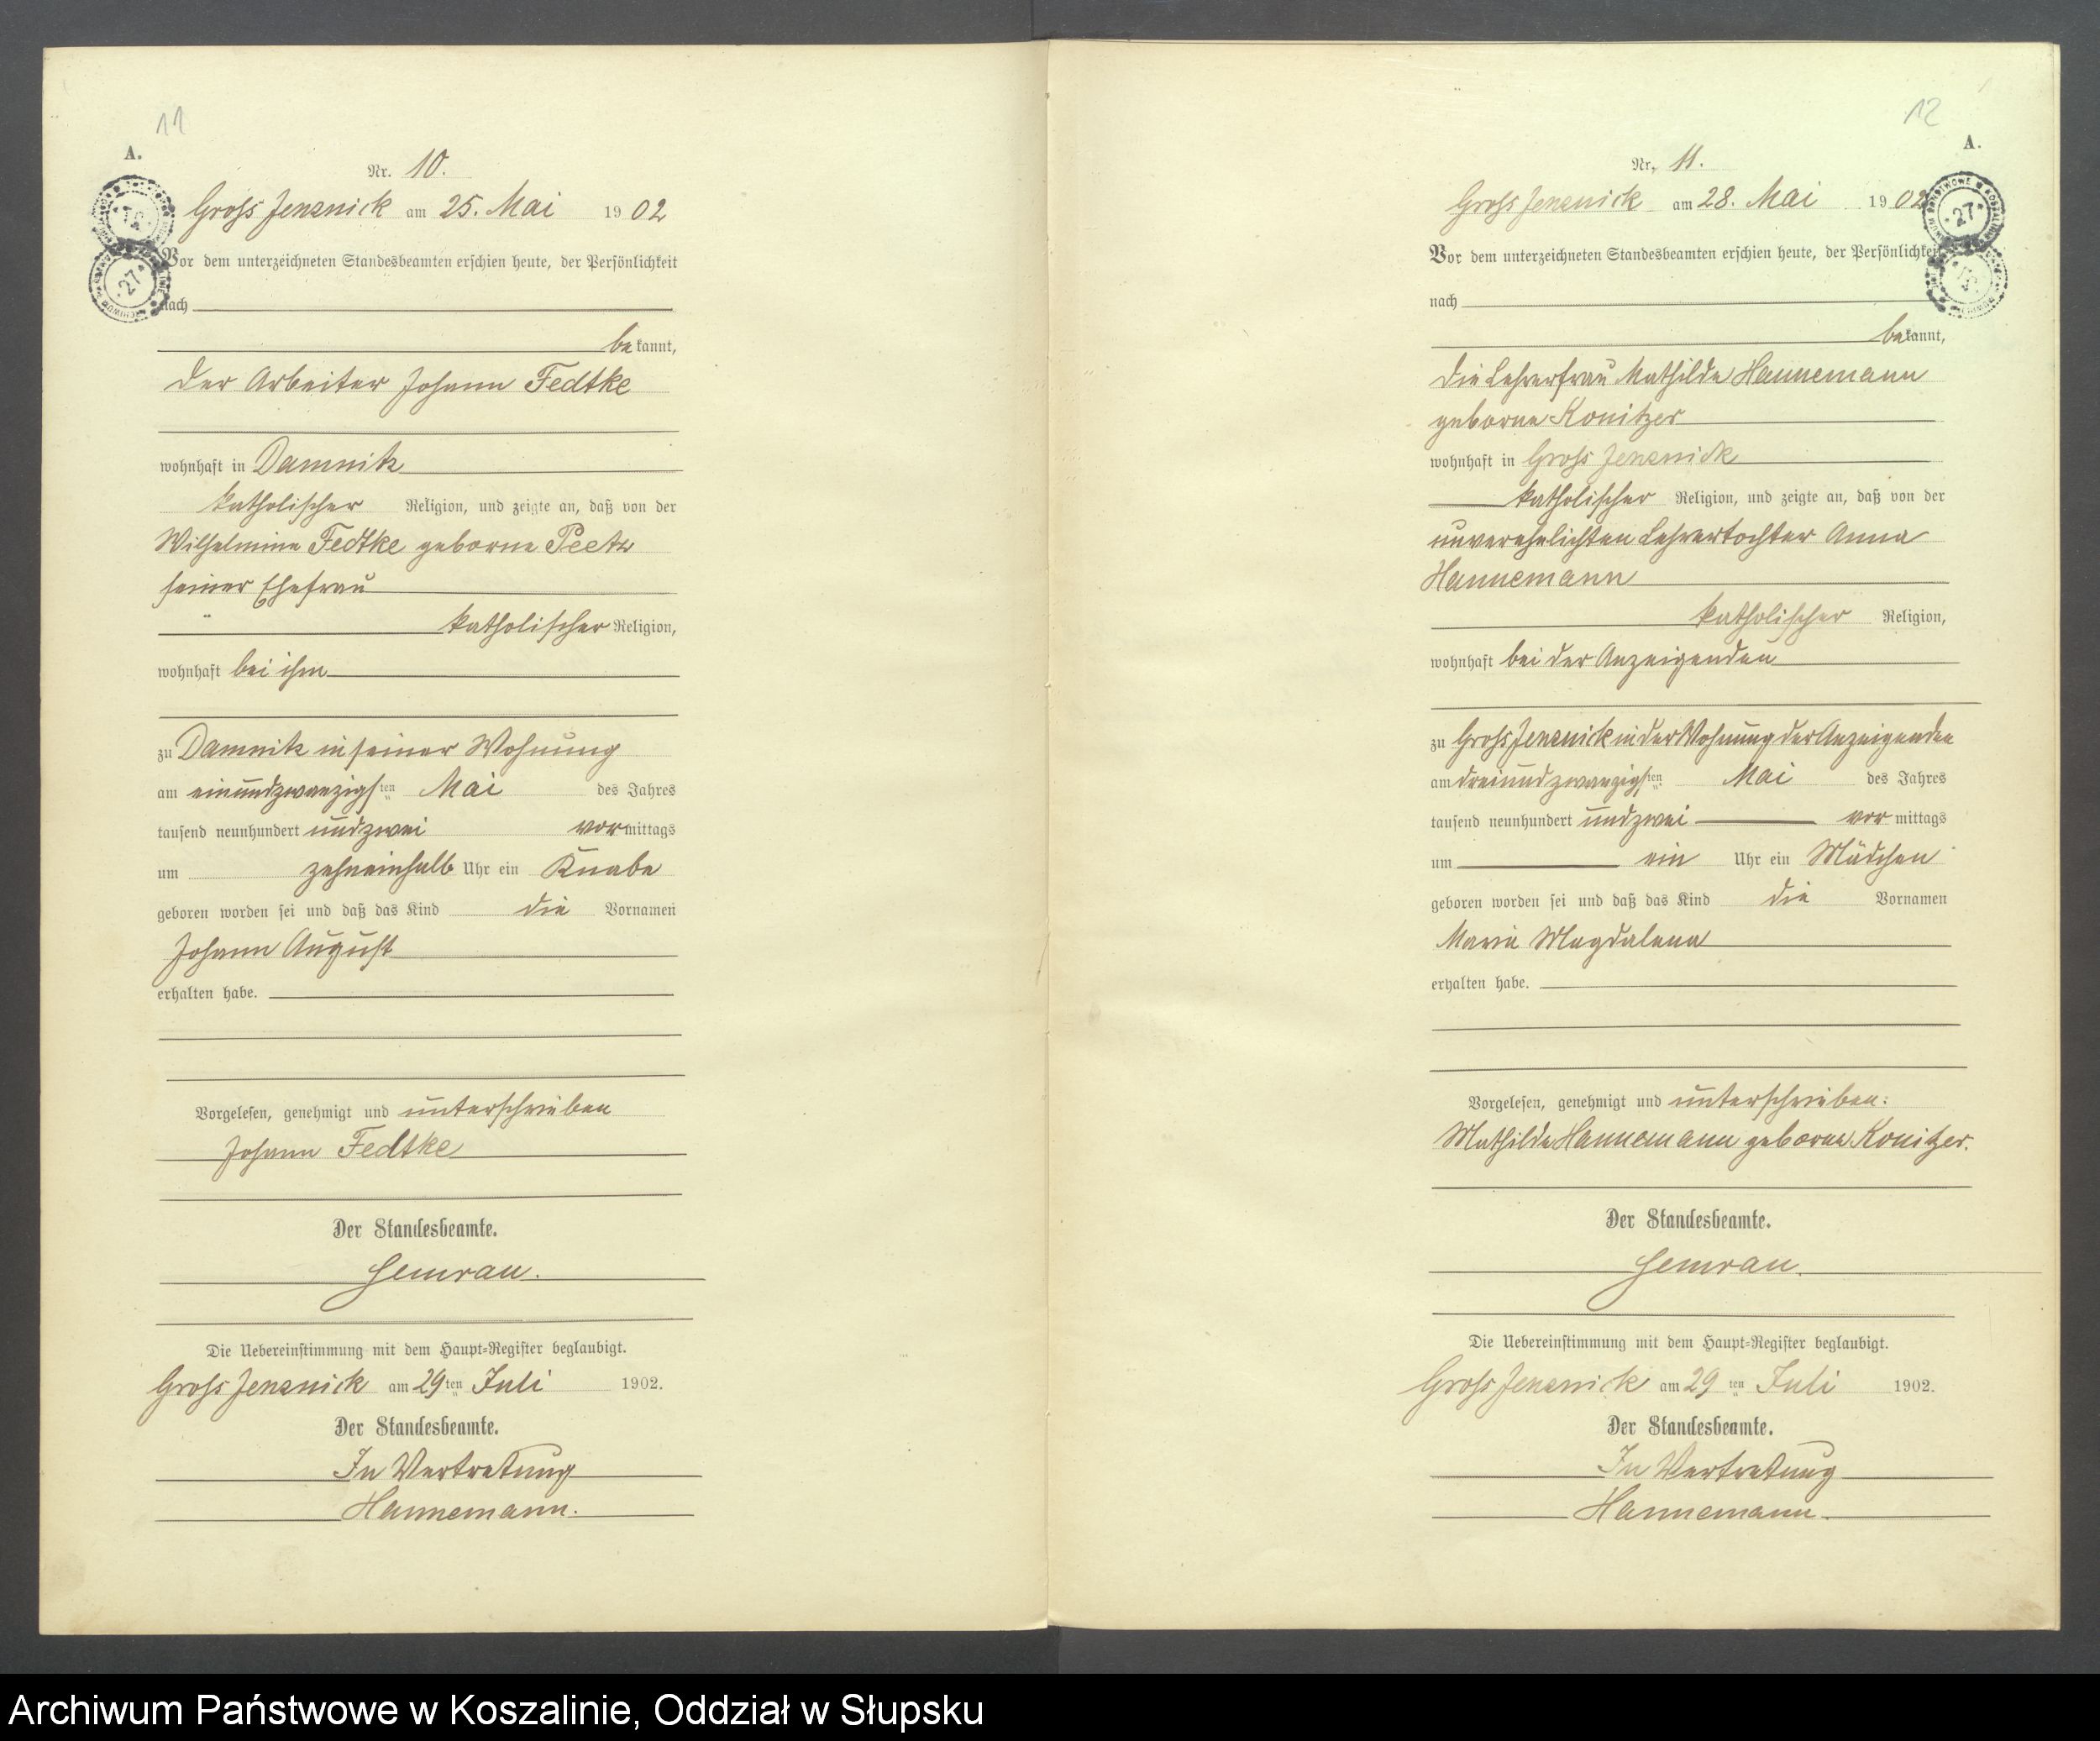 11
A.
Nr. 10.
Gross Jenznick am 25. Mai 1902
Vor dem unterzeichneten Standesbeamten erschien heute, der Persönlichkeit
nach
bekannt,
der Arbeiter Johann Fedtke
wohnhaft in Damnitz
katholischer Religion, und zeigte an, daß von der
Wilhelmine Fedtke geborne Peetz
seiner Ehefrau
katholischer Religion,
wohnhaft bei ihm
zu Damnitz in seiner Wohnung
am einundzwanzigsten Mai des Jahres
tausend neunhundert und zwei vormittags
um zehneinhalb Uhr ein Knabe
geboren worden sei und daß das Kind die Vornamen
Johann August
erhalten habe.
Vorgelesen, genehmigt und unterschrieben
Johann Fedtke
Der Standesbeamte.
Semrau.
Die Uebereinstimmung mit dem Haupt-Register beglaubigt.
Gross Jenznick am 29ten Juli 1902.
Der Standesbeamte.
In Vertretung
Hannemann.
12
A.
Nr. 11.
27
Gross Jenznick am 28. Mai 1902
Vor dem unterzeichneten Standesbeamten erschien heute, der Persönlichkeit
nach
bekannt,
die Lehrerfrau Mathilde Hannemann
geborne Konitzer
wohnhaft in Gross Jenznick
katholischer Religion, und zeigte an, daß von der
unverehelichten Lehrertochter Anna
Hannemann
katholischer Religion,
wohnhaft bei der Anzeigenden
zu Gross Jenznick in der Wohnung der Anzeigenden
am dreiundzwanzigsten Mai des Jahres
tausend neunhundert und zwei vormittags
um ein Uhr ein Mädchen
geboren worden sei und daß das Kind die Vornamen
Maria Magdalena
erhalten habe.
Vorgelesen, genehmigt und unterschrieben:
Mathilde Hannemann geborne Konitzer.
Der Standesbeamte.
Semrau.
Die Uebereinstimmung mit dem Haupt-Register beglaubigt.
Gross Jenznick am 29ten Juli 1902.
Der Standesbeamte.
In Vertretung
Hannemann.
Archiwum Państwowe w Koszalinie, Oddział w Słupsku